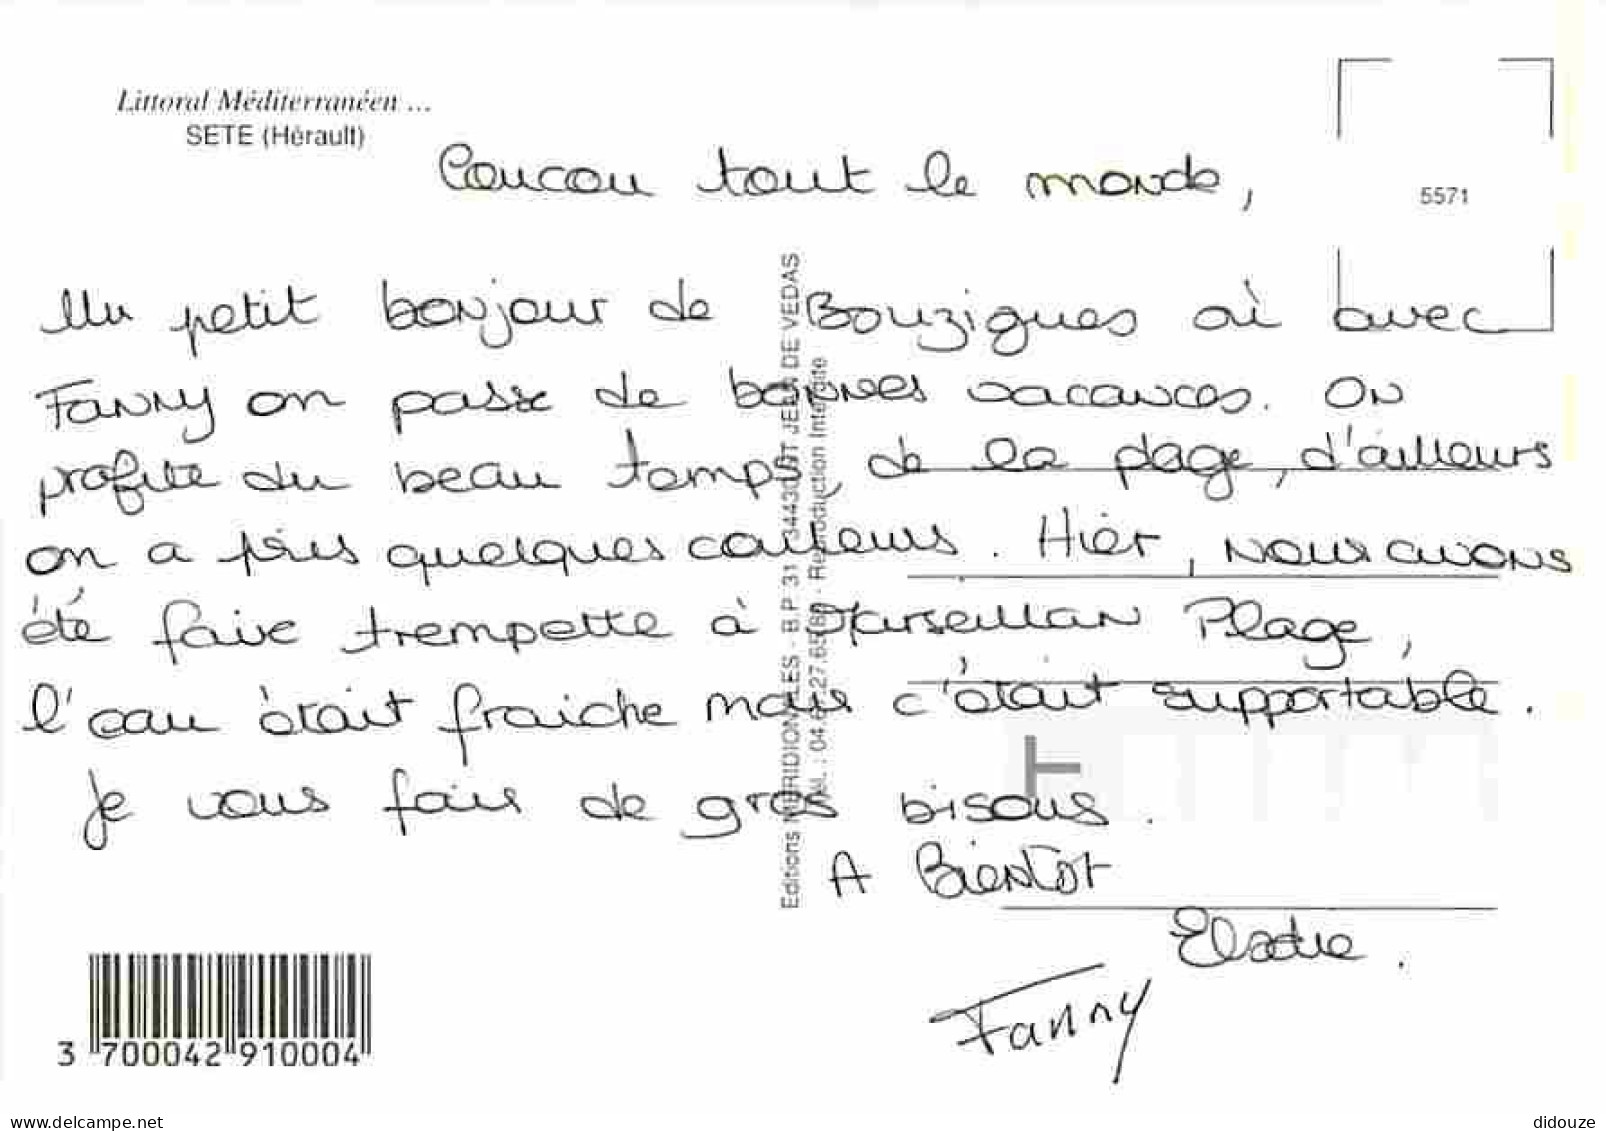 Littoral Méditerranéen ...
SETE (Hérault)
5571
Coucou tout le monde,
Un petit bonjour de Bouzigues où avec
Fanny on passe de bonnes vacances. On
profite du beau temps, de la plage, d'ailleurs
on a pris quelques couleurs. Hier, nous avons
été faire trempette à Marseillan Plage,
l'eau était fraiche mais c'était supportable.
Je vous fais de gros bisous.
A Bientôt
Elodie.
Fanny
Editions MERIDIONALES - B.P. 31 - 34430 ST JEAN DE VEDAS
- Reproduction Interdite
3 700042 910004
www.delcampe.net
didouze